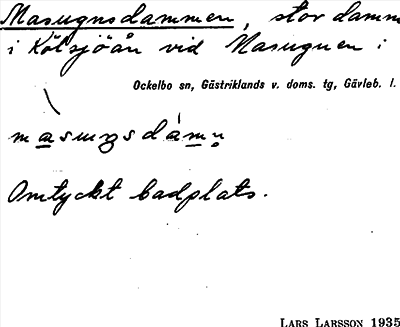 Masugnsdammen, stor damm
i Kölsjöån vid Masugnen i
Ockelbo sn, Gästriklands v. doms. tg, Gävleb. l.
Omtyckt badplats.
LARS LARSSON 1935